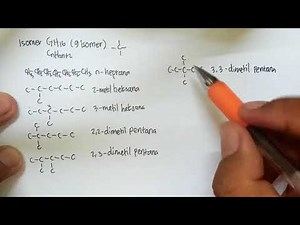 Isomer C7H16 (9 isomer)
CnH2n+2
CH3 CH2 CH2 CH2 CH2 CH2 CH3 n-heptana
C-C-C-C-C-C 2-metil heksana
C
C-C-C-C-C-C 3-metil heksana
C
C
C-C-C-C-C 2,2-dimetil pentana
C
C-C-C-C-C 2,3-dimetil pentana
C C
C
C-C-C-C 3,3-dimetil pentana
C